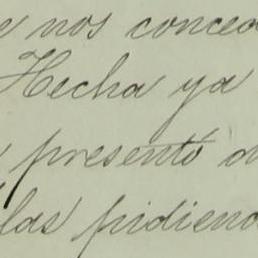 e nos conced
Hecha ya
presentó d
las pidiend